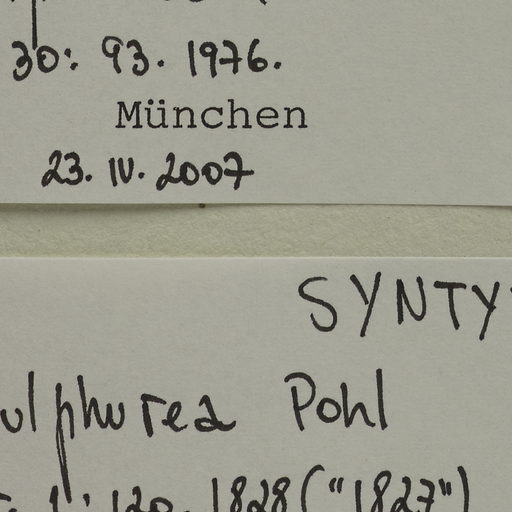 30: 93. 1976.
München
23. IV. 2007
SYNTY
ulphurea Pohl
1: 120. 1828 ("1827")